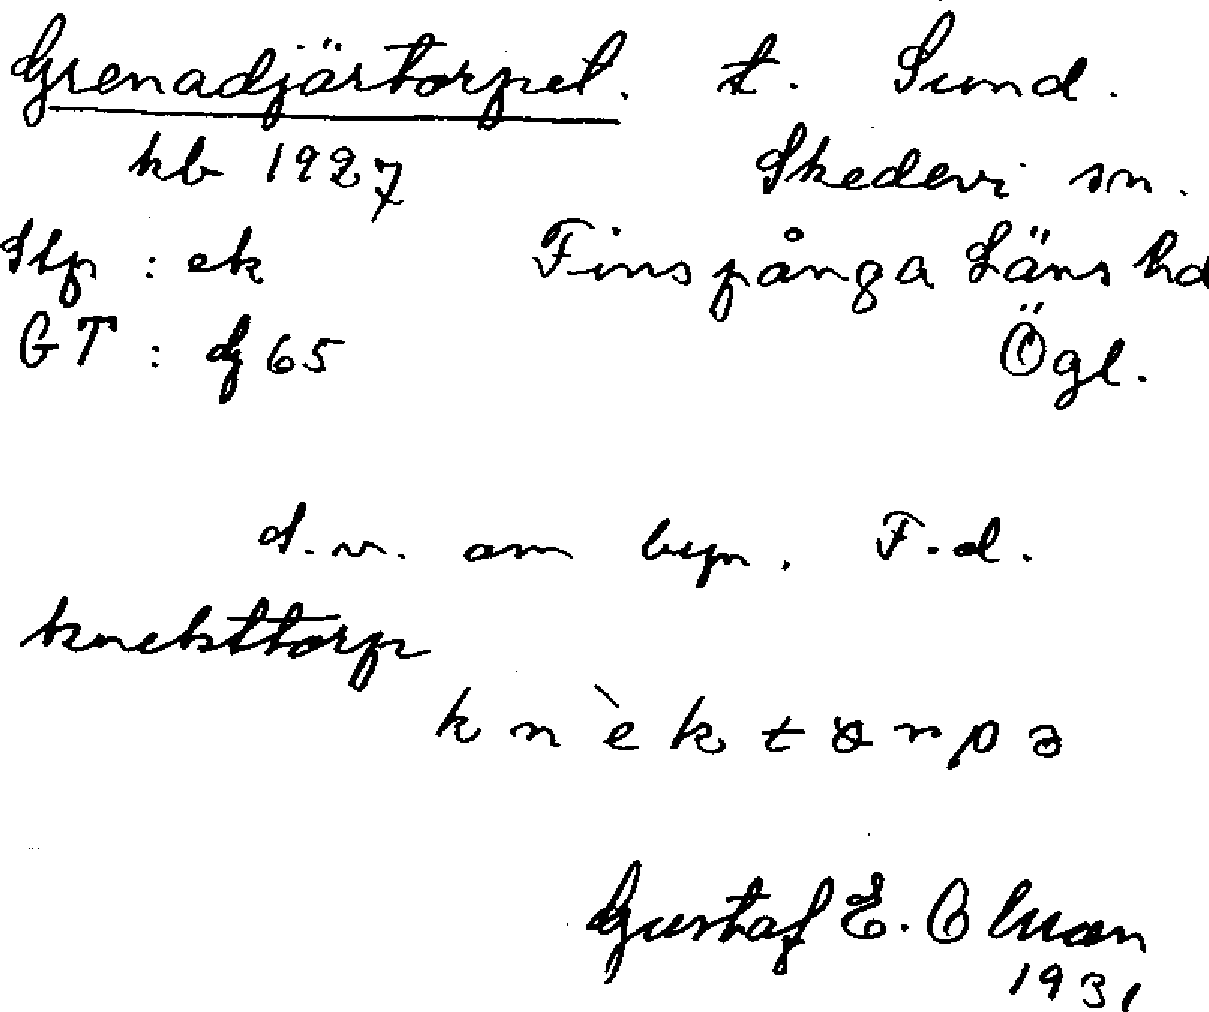 Grenadjärtorpet. t. Sund.
kb 1927 Skedevi sn.
Stp : ek Finspånga Läns hd
GT : dj 65 Ögl.
S.v. om byn. F.d.
knekttorp
k n è k t o r p ə
Gustaf E. Olsson
1931